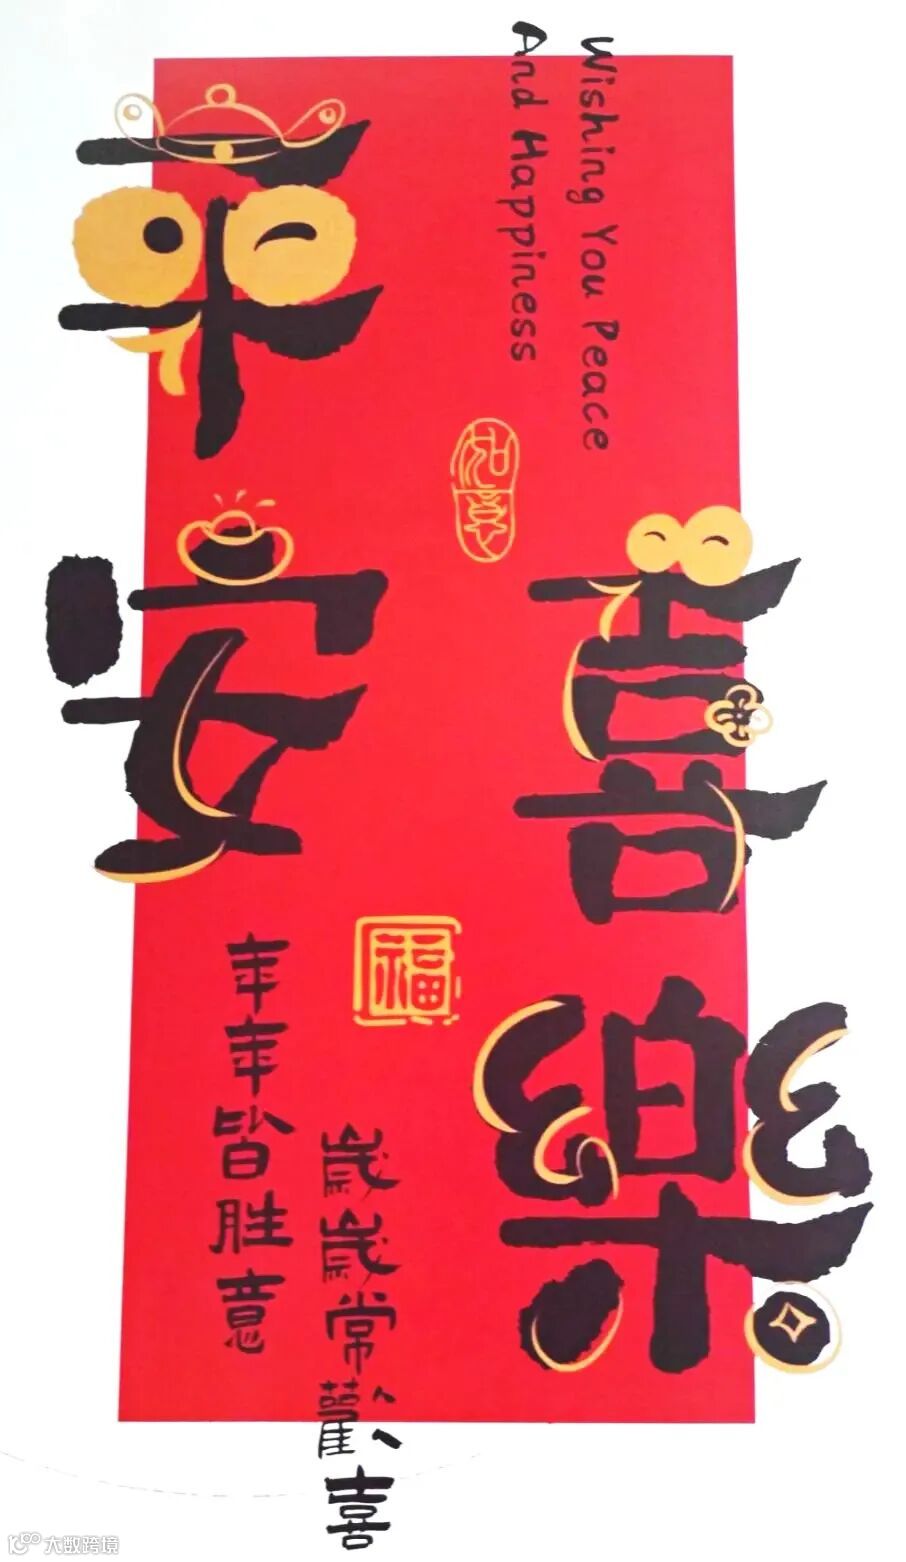 Wishing You Peace
And Happiness
平安
喜樂
如意
福
年年皆胜意
歲歲常歡喜
大数跨境